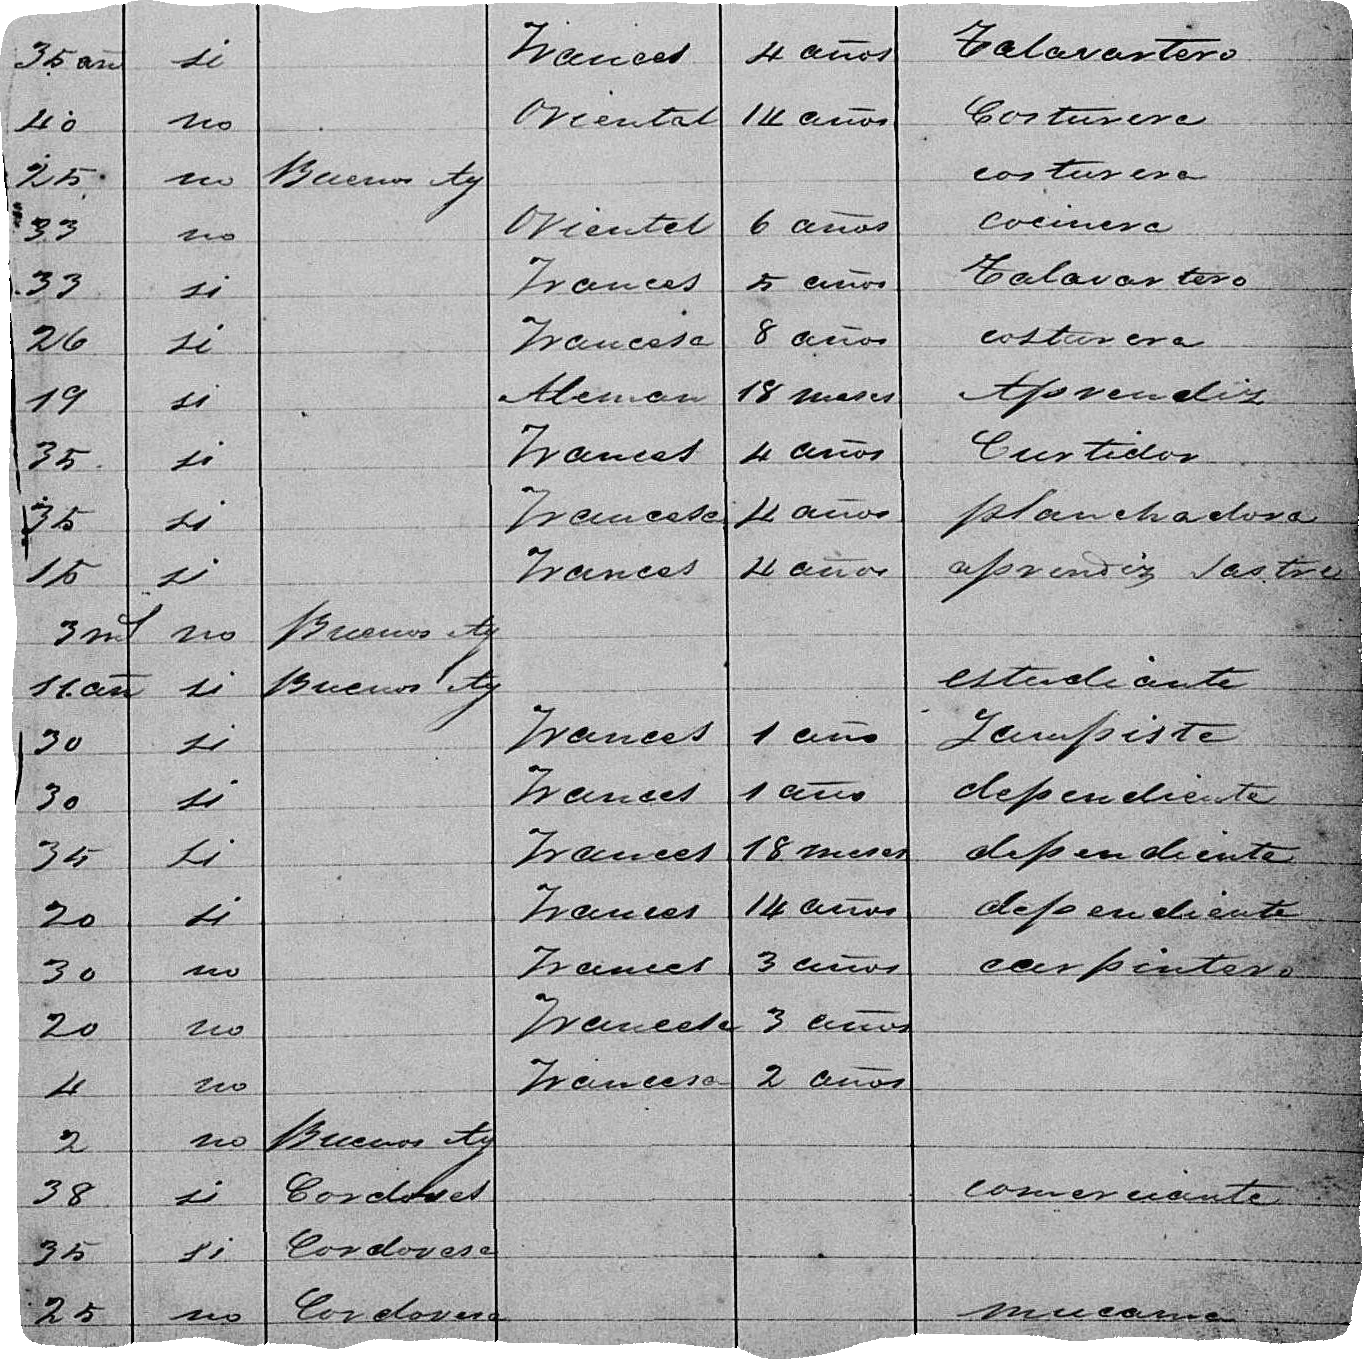 35 añ si Frances 4 años Talavartero
40 no Oriental 14 años Costurera
25 no Buenos Ay costurera
33 no Oriental 6 años cocinera
33 si Frances 5 años Talavartero
26 si Francesa 8 años costurera
19 si Aleman 18 meses Aprendiz
35 si Frances 4 años Curtidor
35 si Francesa 4 años planchadora
15 si Frances 4 años aprendiz sastre
3 ms no Buenos Ay
11 añ si Buenos Ay estudiante
30 si Frances 1 año Lampista
30 si Frances 1 año dependiente
35 si Frances 18 meses dependiente
20 si Frances 14 años dependiente
30 no Frances 3 años carpintero
20 no Francesa 3 años
4 no Francesa 2 años
2 no Buenos Ay
38 si Cordoves comerciante
35 si Cordovesa
25 no Cordovesa mucama